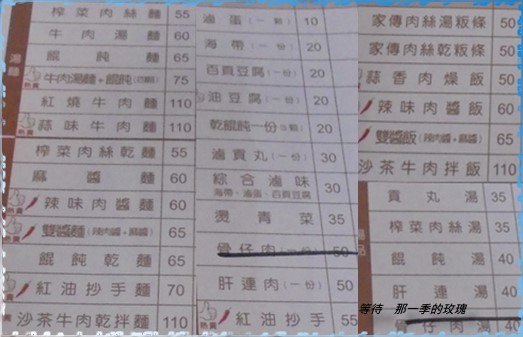 榨菜肉絲麵 55
牛肉湯麵 60
餛飩麵 65
牛肉湯麵+餛飩(四顆) 75
熱賣
紅燒牛肉麵 110
蒜味牛肉麵 110
榨菜肉絲乾麵 55
麻醬麵 60
辣味肉醬麵 60
熱賣
雙醬麵(辣肉醬+麻醬) 65
熱賣
餛飩乾麵 65
紅油抄手麵 70
熱賣
沙茶牛肉乾拌麵 110
滷蛋(一顆) 10
海帶(一份) 20
百頁豆腐(一份) 20
油豆腐(一份) 20
乾餛飩一份 20
滷貢丸(一份) 30
綜合滷味 30
海帶、滷蛋、百頁豆腐
燙青菜 35
骨仔肉(一份) 50
肝連肉(一份) 50
紅油抄手 55
熱賣
家傳肉絲湯粄條 50
家傳肉絲乾粄條 50
蒜香肉燥飯 50
辣味肉醬飯 60
雙醬飯(辣肉醬+麻醬) 65
沙茶牛肉拌飯 110
貢丸湯 35
榨菜肉絲湯 35
餛飩湯 40
肝連湯 40
骨仔肉湯 40
等待 那一季的玫瑰